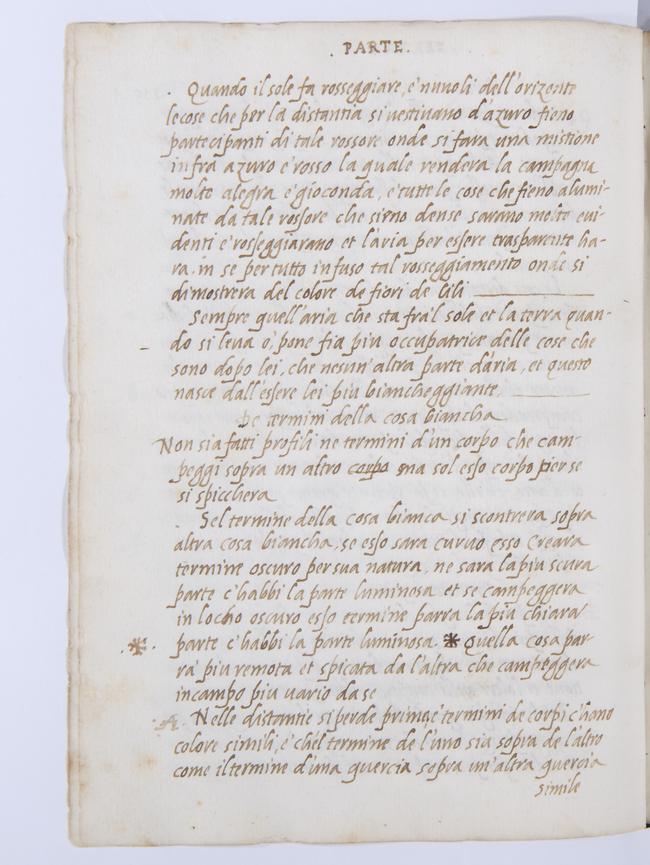 . PARTE.
. Quando il sole fa rosseggiare, e' nuvoli dell'orizonte
le cose che per la distantia si vestivano d'azuro fieno
partecipanti di tale rossore onde si fara una mistione
infra azuro e' rosso la quale rendera la campagna
molto alegra e' gioconda, e' tutte le cose che fieno alumi-
nate da tale rossore che sieno dense sarano molto eui-
denti e' rosseggiarano et l'aria per essere trasparente ha-
ra. in se per tutto infuso tal rosseggiamento onde si
dimostrera del colore de fiori de Gili
Sempre quell'aria che sta fra'l sole et la terra quan-
do si leua o' pone fia piu occupatrice delle cose che
sono dopo lei, che nesun'altra parte d'aria, et questo
nasce dall'essere lei piu biancheggiante.
De termini della cosa biancha
Non sia fatti profili ne termini d'un corpo che cam-
peggi sopra un altro corpo ma sol esso corpo per se
si spicchera
. Se'l termine della cosa bianca si scontrera sopra
altra cosa biancha, se esso sara curuo esso Creara
termine oscuro per sua natura, ne sara la piu scura
parte c'habbi la parte luminosa et se campeggera
in locho oscuro esso termine parra la piu chiara
. * . parte c'habbi la parte luminosa. * Quella cosa par-
ra' piu remota et spicata da l'altra che campeggera
in campo piu uario da se
. A. Nelle distantie si perde prima e' termini de corpi c'hano
colore simili, e' ch'el termine de l'uno sia sopra de l'altro
come il termine d'una quercia sopra un'altra quercia
simile